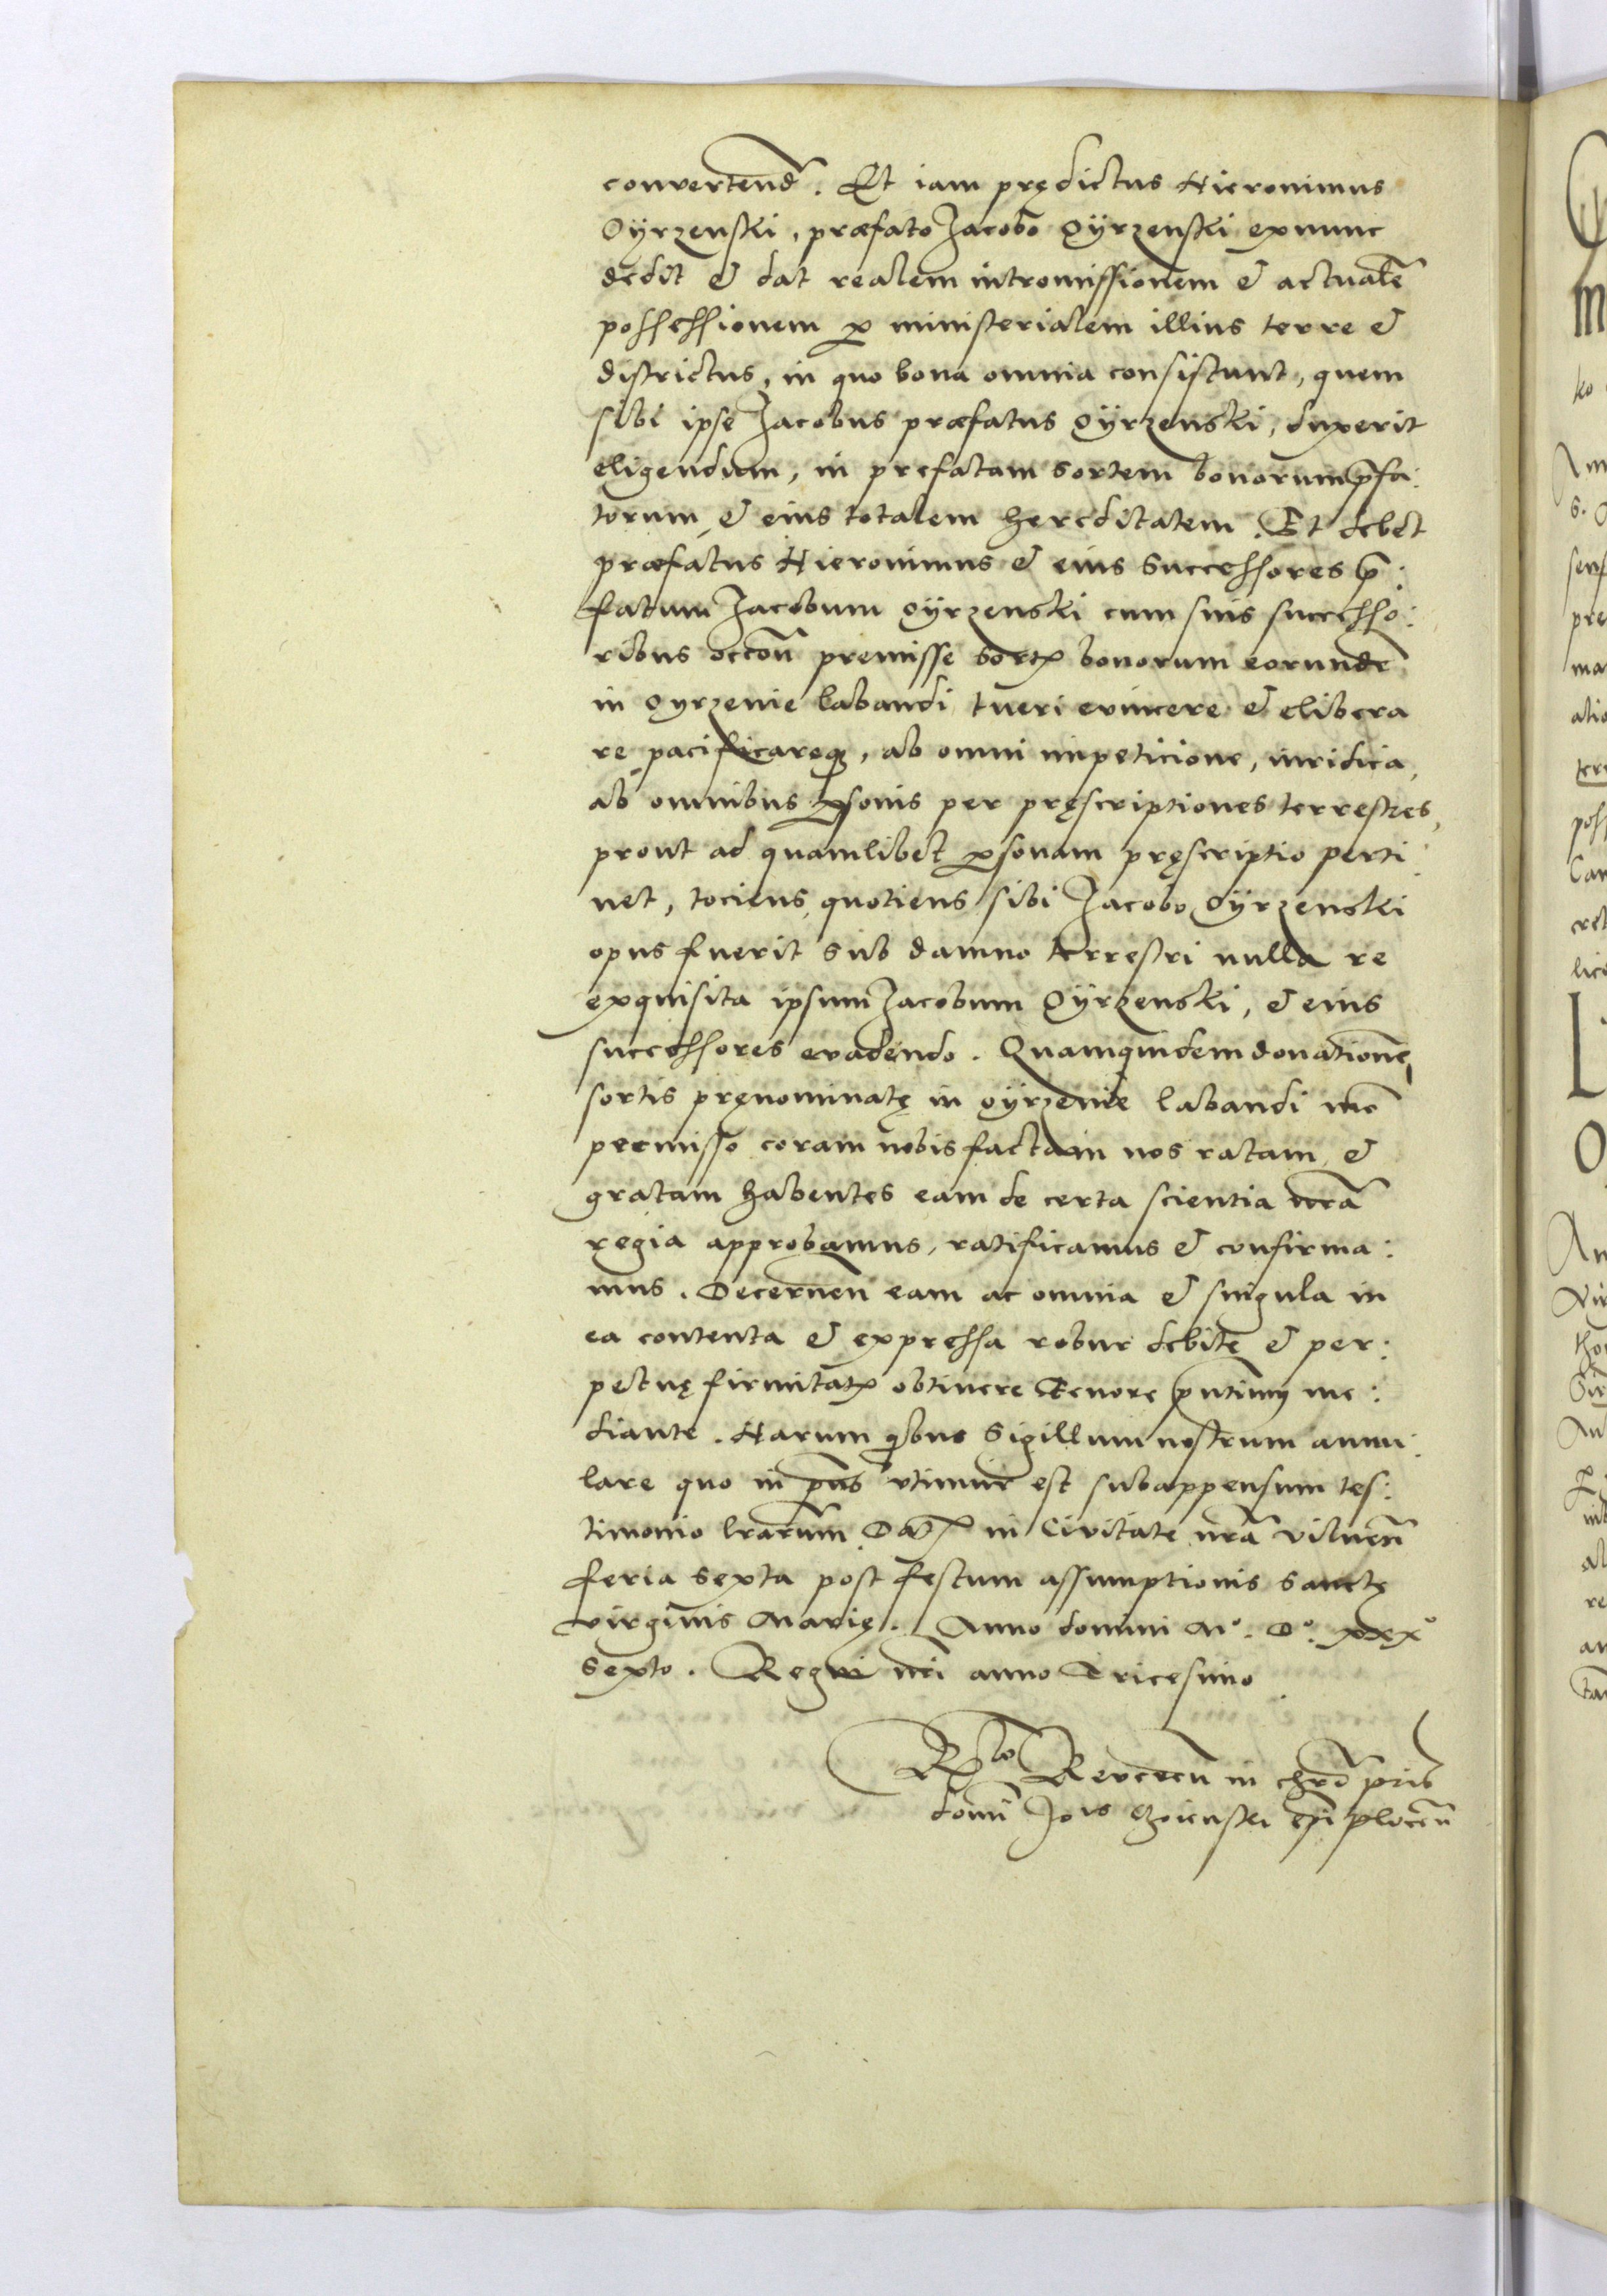 convertend. Et iam prędictus Hieronimus
Oÿrzenski, præfato Jacobo Oÿrzenski exnunc
dedit & dat realem intromissionem & actualē
possessionem p ministerialem illius terre &
districtus, in quo bona omnia consistunt, quem
sibi ipse Jacobus præfatus Oÿrzenski, duxerit
eligendum, in prefatam sortem bonorum p̄fa:
torum, & eius totalem hereditatem. Et debet
præfatus Hieronimus & eius Successores p̄:
fatum Jacobum Oÿrzenski cum suis successo:
ribus occōn premisse sortis bonorum eorundē
in Oyrzenie labandi tueri evincere & elibera
re pacificareq, ab omni impeticione, iuridica,
ab omnibus psonis per pręscriptiones terrestres,
prout ad quamlibet psonam pręscriptio perti:
net, tociens, quotiens sibi Jacobo Oÿrzenski
opus fuerit sub damno terrestri nulla re
exquisita ipsum Jacobum Oÿrzenski, & eius
successores evadendo. Quamquidem donationē
sortis pręnominatę in Oÿrzenie labandi mō
premisso coram nobis factam nos ratam &
gratam habentes eam de certa scientia nrā
regia approbamus, ratificamus & confirma:
mus. Decernen eam ac omnia & singula in
ea contenta & expressa robur debite & per:
petuę firmitatis obtinere Tenore p̄ntium me:
diante. Harum quibus Sigillum nostrum annu:
lare quo in p̄ns utimur est subappensum tes:
timonio lrarum. Dat in Civitate nrā Vilnen̄
feria sexta post festum assumptionis Sanctę
virginis Marię. Anno domini Mº. Dº. xxxº
Sexto. Regni nri anno Tricesimo
Rlo Reveren in chrō pris
domī Jois Choienski epi plocen̄